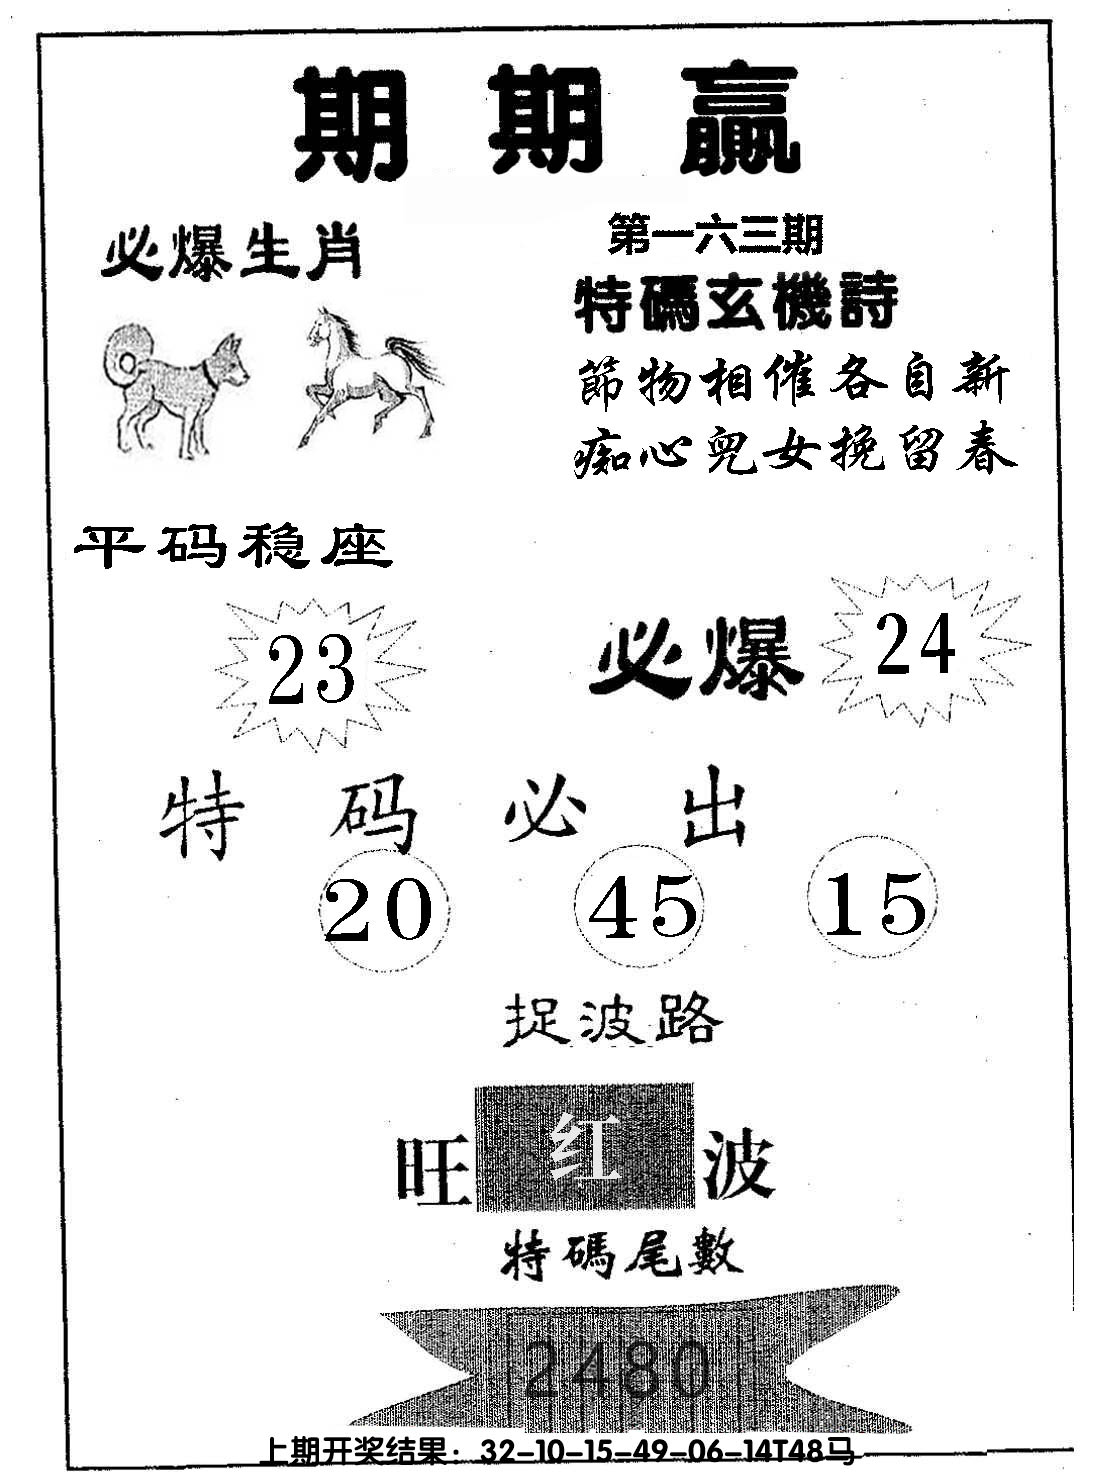 期期赢
必爆生肖
第一六三期
特碼玄機詩
節物相催各自新
痴心兒女挽留春
平码稳座
23
必爆 24
特码必出
20 45 15
捉波路
旺 红 波
特碼尾數
2480
上期开奖结果：32-10-15-49-06-14T48马